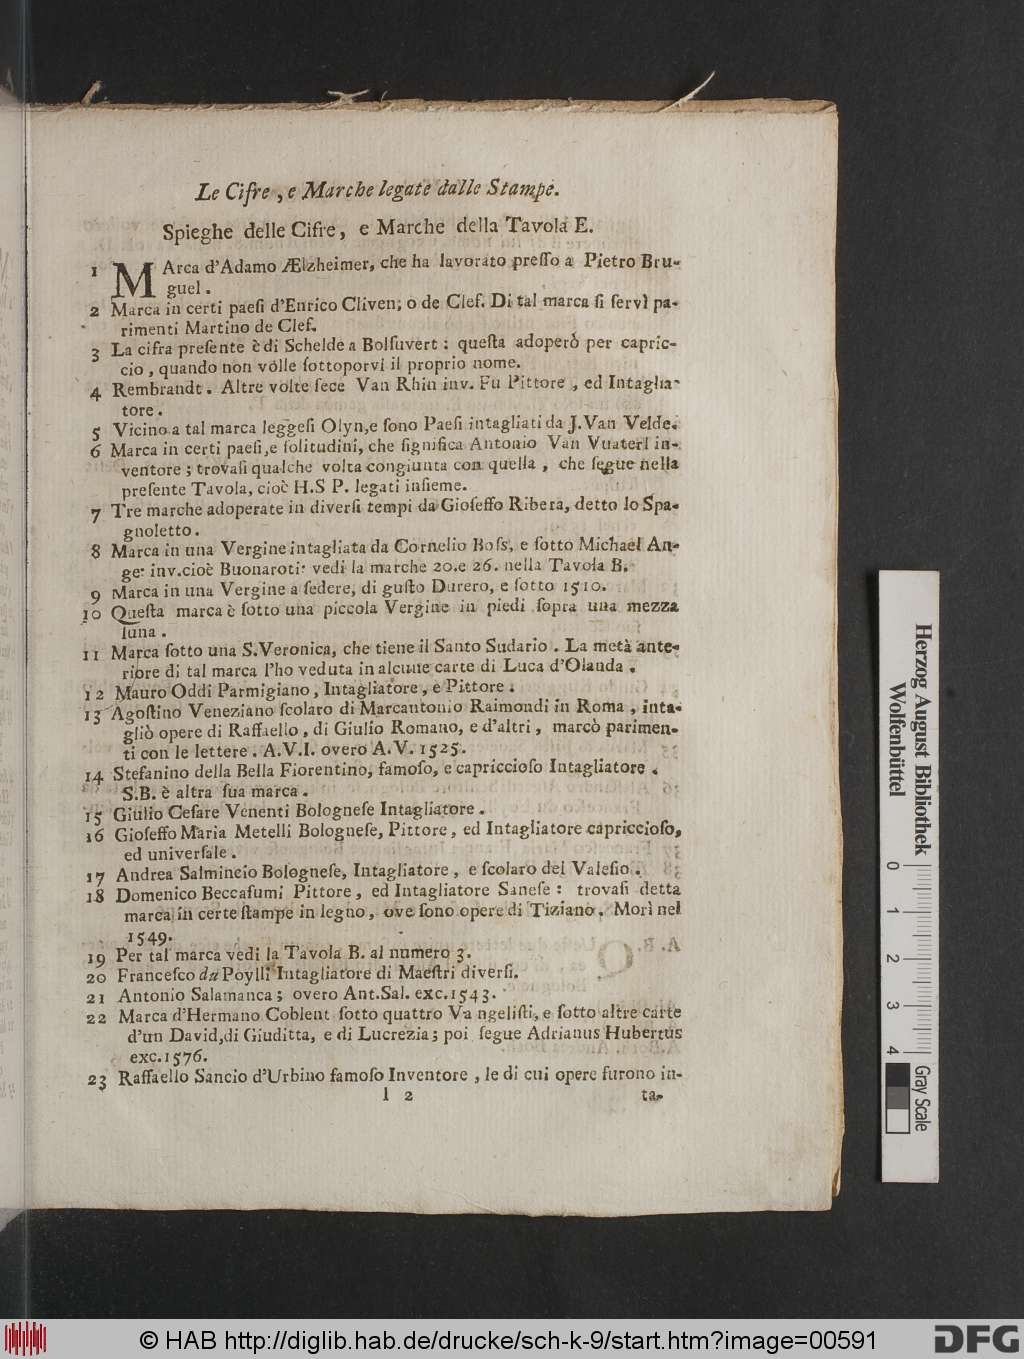 Le Cifre, e Marche legate dalle Stampe.
Spieghe delle Cifre, e Marche della Tavola E.
1 MArca d'Adamo Ælzheimer, che ha lavorato preſſo a Pietro Bru-
guel.
2 Marca in certi paeſi d'Enrico Cliven; o de Clef. Di tal marca ſi ſervì pa-
rimenti Martino de Clef.
3 La cifra preſente è di Schelde a Bolſuvert: queſta adoperò per capric-
cio, quando non volle ſottoporvi il proprio nome.
4 Rembrandt. Altre volte fece Van Rhin inv. Fu Pittore, ed Intaglia-
tore.
5 Vicino a tal marca leggeſi Olyn, e ſono Paeſi intagliati da J. Van Velde.
6 Marca in certi paeſi, e ſolitudini, che ſignifica Antonio Van Vuaterl in-
ventore; trovaſi qualche volta congiunta con quella, che ſegue nella
preſente Tavola, cioè H.S P. legati inſieme.
7 Tre marche adoperate in diverſi tempi da Gioſeffo Ribera, detto lo Spa-
gnoletto.
8 Marca in una Vergine intagliata da Cornelio Boſs, e ſotto Michael An-
ge: inv. cioè Buonaroti: vedi la marche 20. e 26. nella Tavola B.
9 Marca in una Vergine a ſedere, di guſto Durero, e ſotto 1510.
10 Queſta marca è ſotto una piccola Vergine in piedi ſopra una mezza
luna.
11 Marca ſotto una S. Veronica, che tiene il Santo Sudario. La metà ante-
riore di tal marca l'ho veduta in alcune carte di Luca d'Olanda.
12 Mauro Oddi Parmigiano, Intagliatore, e Pittore.
13 Agoſtino Veneziano ſcolaro di Marcantonio Raimondi in Roma, inta-
gliò opere di Raffaello, di Giulio Romano, e d'altri, marcò parimen-
ti con le lettere. A.V.I. overo A.V. 1525.
14 Stefanino della Bella Fiorentino, famoſo, e capriccioſo Intagliatore.
S.B. è altra ſua marca.
15 Giulio Ceſare Venenti Bologneſe Intagliatore.
16 Gioſeffo Maria Metelli Bologneſe, Pittore, ed Intagliatore capriccioſo,
ed univerſale.
17 Andrea Salmincio Bologneſe, Intagliatore, e ſcolaro del Valeſio.
18 Domenico Beccafumi Pittore, ed Intagliatore Saneſe: trovaſi detta
marca in certe ſtampe in legno, ove ſono opere di Tiziano. Morì nel
1549.
19 Per tal marca vedi la Tavola B. al numero 3.
20 Franceſco da Poylli Intagliatore di Maeſtri diverſi.
21 Antonio Salamanca; overo Ant. Sal. exc. 1543.
22 Marca d'Hermano Coblent ſotto quattro Va ngeliſti, e ſotto altre carte
d'un David, di Giuditta, e di Lucrezia; poi ſegue Adrianus Hubertus
exc. 1576.
23 Raffaello Sancio d'Urbino famoſo Inventore, le di cui opere furono in-
l 2 ta-
Herzog August Bibliothek
Wolfenbüttel
0 1 2 3 4
Gray Scale
© HAB http://diglib.hab.de/drucke/sch-k-9/start.htm?image=00591
DFG